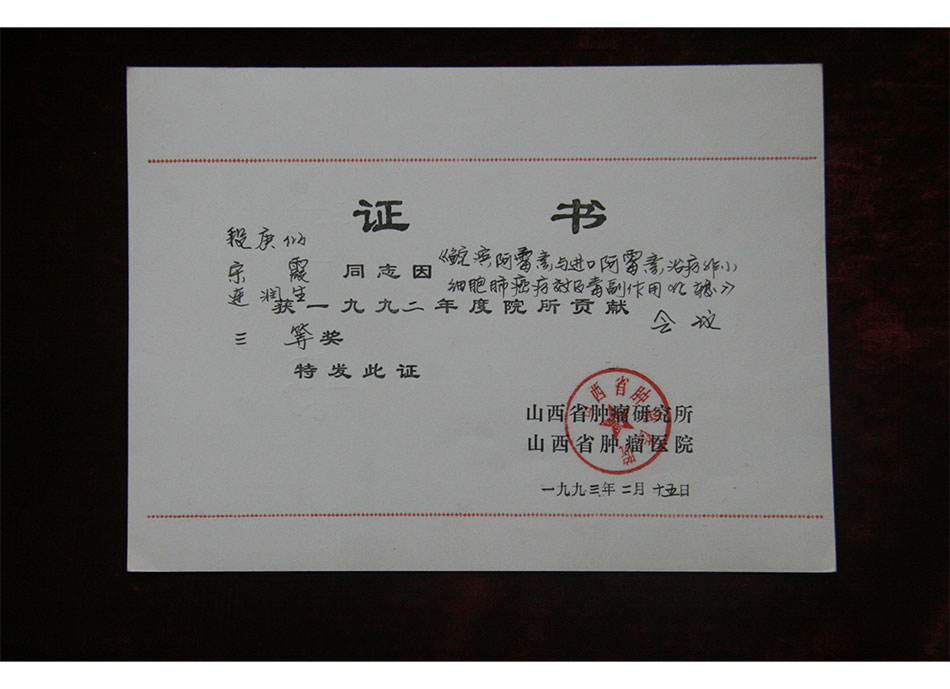 证书
段庚仙
宋霞 同志因
连润生
《鲵滨阿霉素与进口阿霉素治疗非小
细胞肺癌疗效及毒副作用》
获一九九二年度院所贡献
三等奖
特发此证
山西省肿瘤研究所
山西省肿瘤医院
一九九三年二月十五日